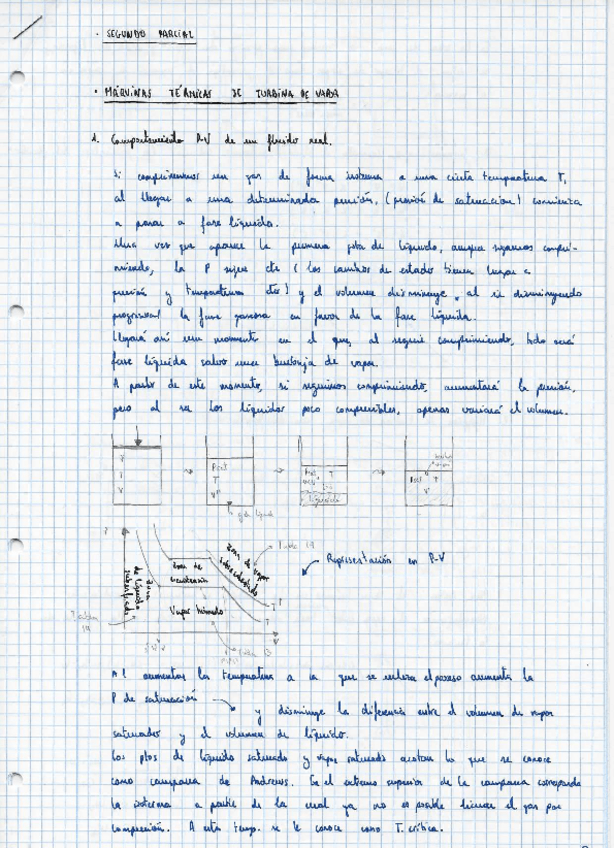 · SEGUNDO PARCIAL
· MÁQUINAS TÉRMICAS DE TURBINA DE VAPOR
1. Comportamiento P-V de un fluido real.
Si comprimimos un gas de forma isoterma a una cierta temperatura T,
al llegar a una determinada presión, (presión de saturación) comienza
a pasar a fase líquida.
Una vez que aparece la primera gota de líquido, aunque sigamos compri-
miendo, la P sigue cte (los cambios de estado tienen lugar a
presión y temperatura ctes) y el volumen disminuye, al ir disminuyendo
progresiva/ la fase gaseosa en favor de la fase líquida.
Llegará así un momento en el que, al seguir comprimiendo, todo será
fase líquida salvo una burbuja de vapor.
A partir de este momento, si seguimos comprimiendo, aumentará la presión,
pero al ser los líquidos poco compresibles, apenas variará el volumen.
P
T
V
Psat
T
V"
T
líquido
Psat T
V'
Zona de líquido subenfriado
Zona de
Vapor húmedo
Zona de vapor sobrecalentado
T'
T
Tabla
Representación en P-V
Al aumentar la temperatura a la que se realiza el proceso aumenta la
P de saturación
y disminuye la diferencia entre el volumen de vapor
saturado y el volumen de líquido.
Los ptos de líquido saturado y vapor saturado acotan lo que se conoce
como campana de Andrews. En el extremo superior de la campana corresponde
la isoterma a partir de la cual ya no es posible licuar el gas por
compresión. A esta temp. se le conoce como T. crítica.